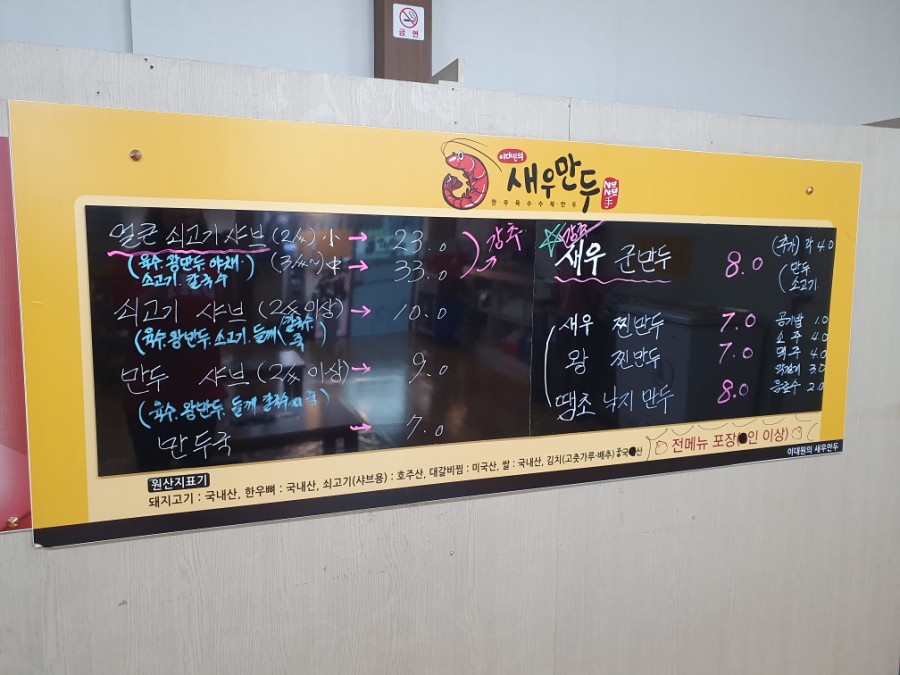 금연
이대원의
새우만두
한우육수수제만두
얼큰 쇠고기 샤브 (2人) 小 → 23.0
(육수.왕만두.야채. (3人~) 中 → 33.0
소고기.칼국수
강추
쇠고기 샤브 (2人 이상) → 10.0
(육수.왕만두.소고기.들깨 칼국수.
만두 샤브 (2人 이상) → 9.0
(육수.왕만두.들깨 칼국수
만두국 → 7.0
강추
새우 군만두 8.0
(추가) 각 4.0
만두
소고기
새우 찐만두 7.0
왕 찐만두 7.0
땡초 낙지 만두 8.0
공기밥 1.0
소주 4.0
맥주 4.0
막걸리 3.0
음료수 2.0
전메뉴 포장( 인 이상)
원산지표기
돼지고기 : 국내산, 한우뼈 : 국내산, 쇠고기(샤브용) : 호주산, 대갈비찜 : 미국산, 쌀 : 국내산, 김치(고춧가루·배추)
이대원의 새우만두